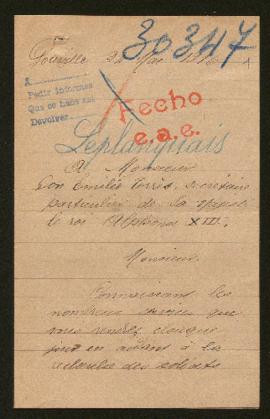 30347
A
Pedir informes
Que se hable
Devolver
Fecho
e.a.e.
Leplanquais
A Monsieur
Don Emilio Torrès, secrétaire
particulier de Sa Majesté
le roi Alphonse XIII.
Monsieur,
Connaissant les
nombreux services que
vous rendez chaque
jour en aidant à la
recherche des soldats